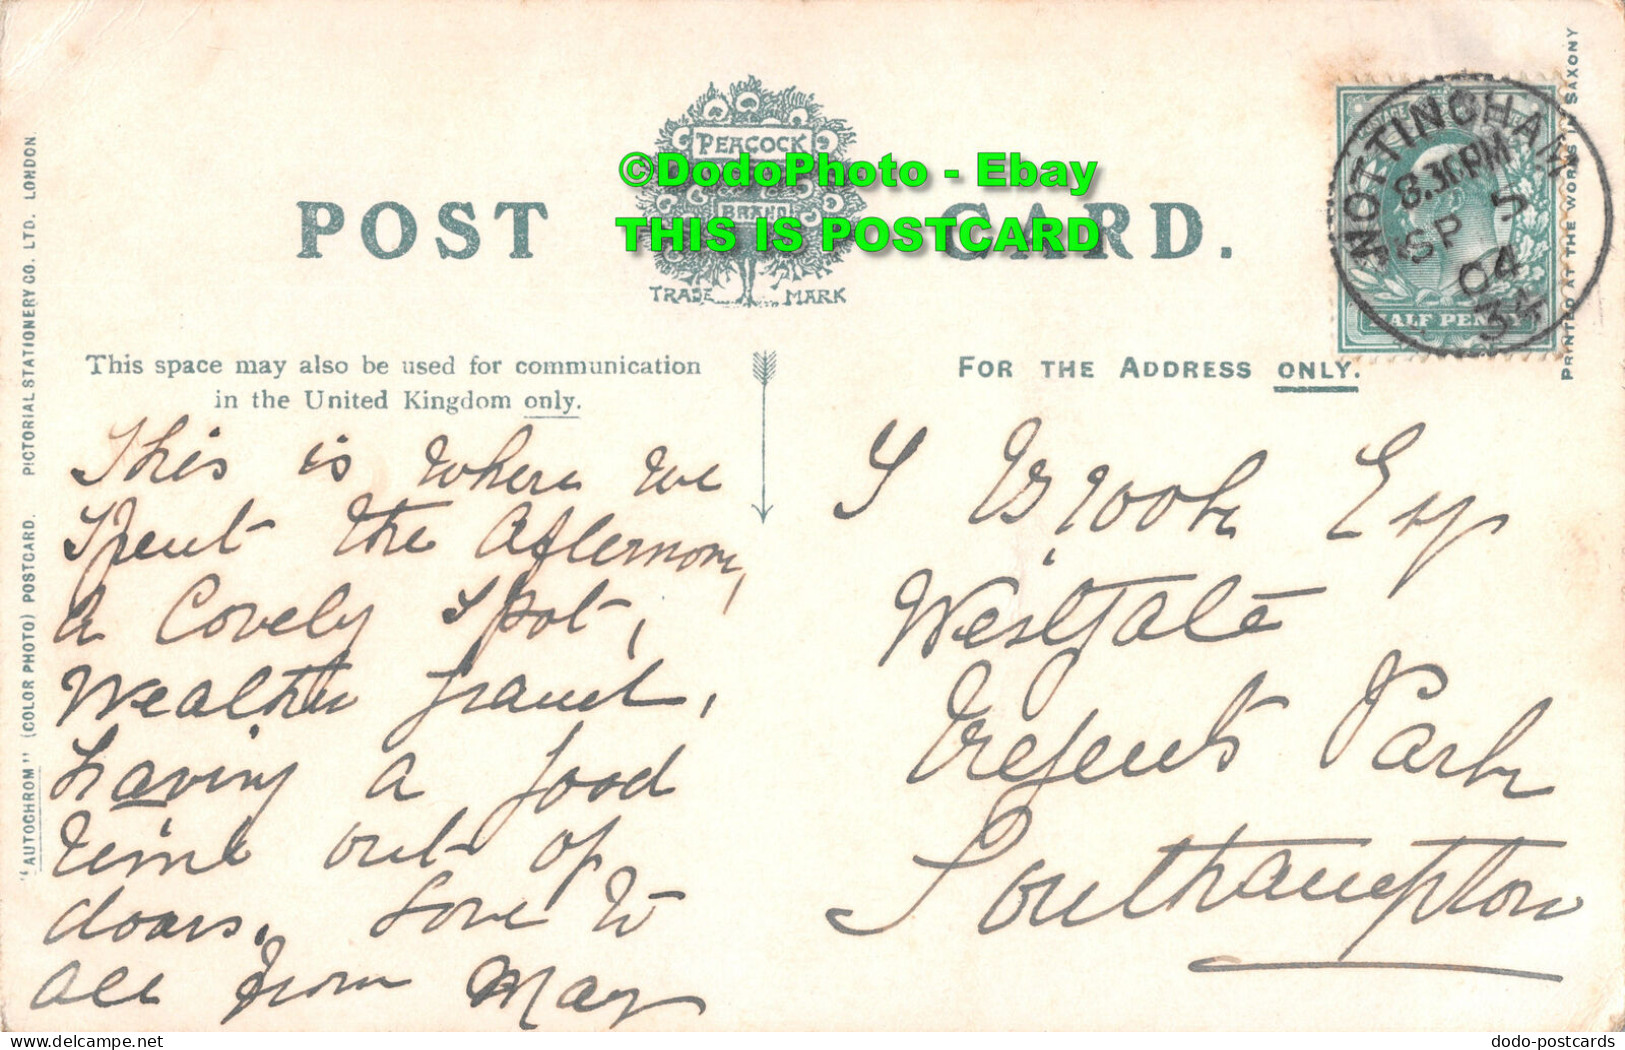 POST CARD.
PEACOCK
BRAND
TRADE MARK
©DodoPhoto - Ebay
THIS IS POSTCARD
NOTTINGHAM
8.30PM
SP 5
04
33
HALF PENNY
PRINTED AT THE WORKS IN SAXONY
"AUTOCHROM" (COLOR PHOTO) POSTCARD. PICTORIAL STATIONERY CO. LTD. LONDON.
This space may also be used for communication
in the United Kingdom only.
FOR THE ADDRESS ONLY.
This is where we
Spent the afternoon,
a Lovely Spot,
Weather grand,
having a good
time out of
doors. Love to
all from May
Brook Esq
Westgate
Regents Park
Southampton
dodo-postcards
delcampe.net